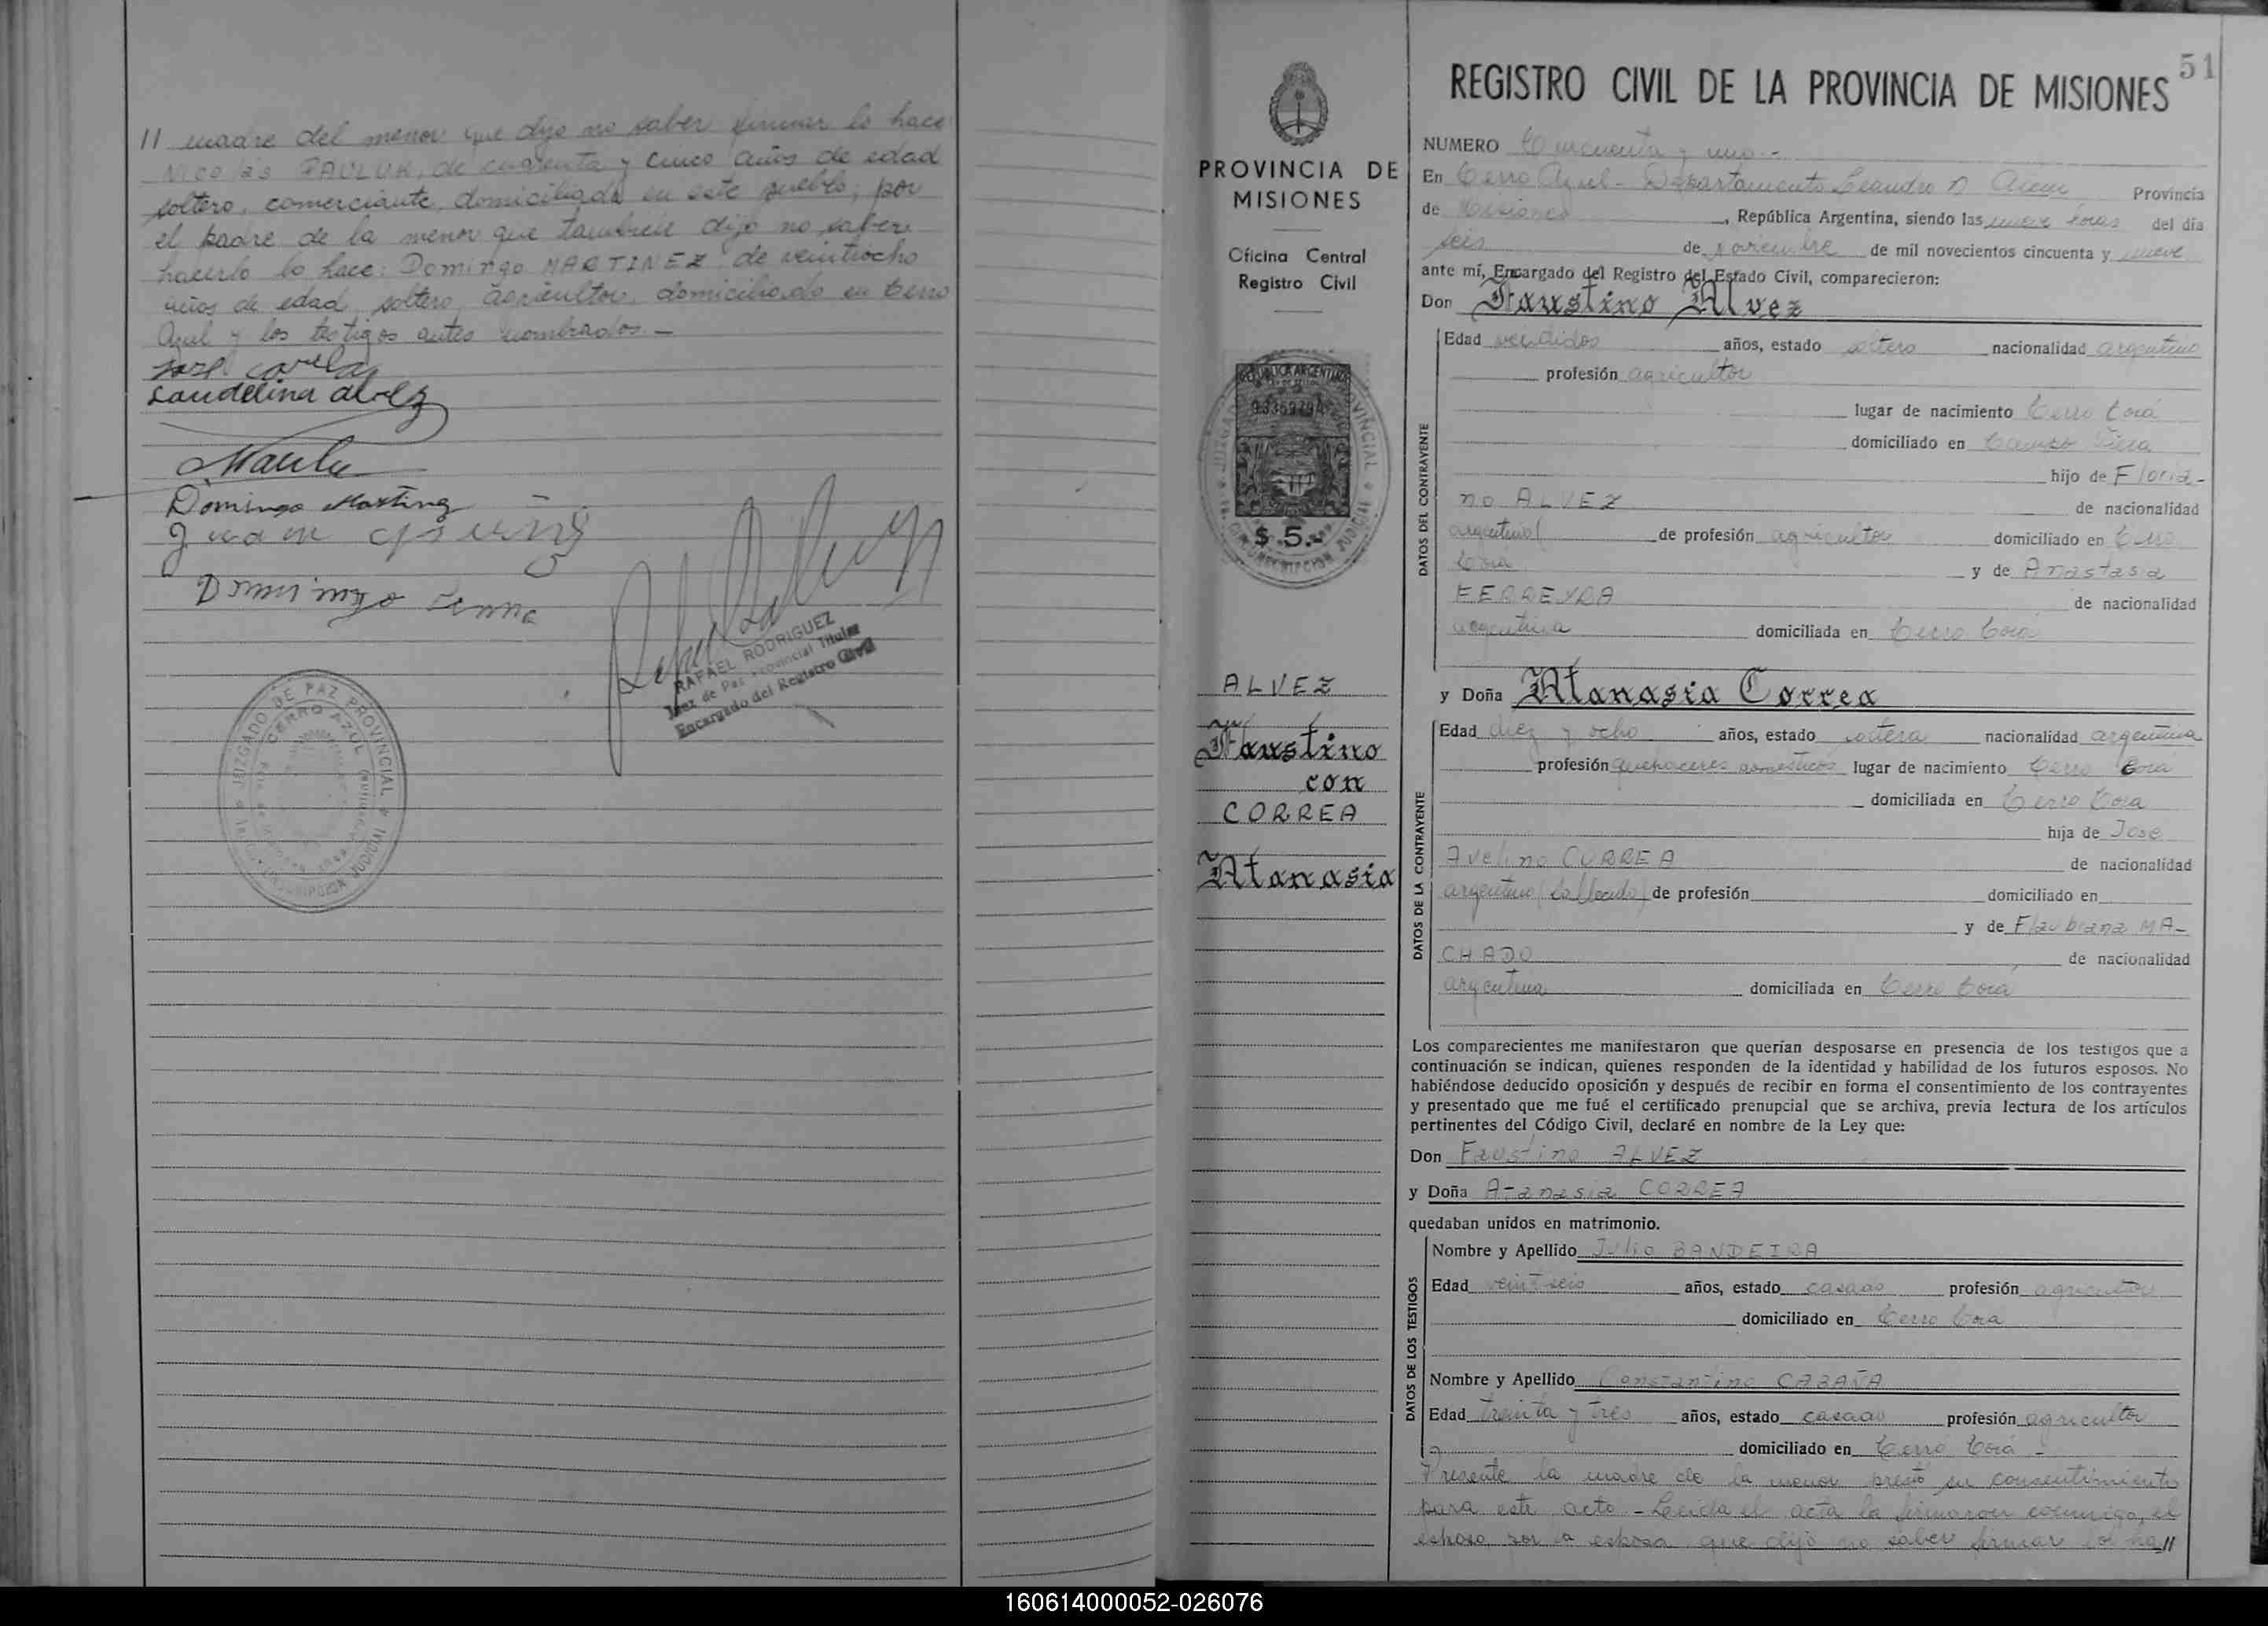 11 madre del menor que dijo no saber firmar lo hace
Nicolás PAULUK, de cuarenta y cinco años de edad
soltero, comerciante, domiciliado en este pueblo; por
el padre de la menor que también dijo no saber
hacerlo lo hace: Domingo MARTINEZ de veintiocho
años de edad, soltero, agricultor, domiciliado en Cerro
Azul y los testigos antes nombrados.—
Laudelina alvez
Domingo Martinez
Juan
Domingo
RAFAEL RODRIGUEZ
Juez de Paz Provincial Titular
Encargado del Registro Civil
JUZGADO DE PAZ PROVINCIAL
CERRO AZUL
1a. CIRCUNSCRIPCION JUDICIAL
PROVINCIA DE
MISIONES
Oficina Central
Registro Civil
REPUBLICA ARGENTINA
$ 5.-
ALVEZ
Faustino
con
CORREA
Atanasia
51
REGISTRO CIVIL DE LA PROVINCIA DE MISIONES
NUMERO Cincuenta y uno.-
En Cerro Azul - Departamento Leandro N Alem Provincia
de Misiones, República Argentina, siendo las nueve horas del día
seis de noviembre de mil novecientos cincuenta y nueve
ante mí, Encargado del Registro del Estado Civil, comparecieron:
Don Faustino Alvez
DATOS DEL CONTRAYENTE
Edad veintidos años, estado soltero nacionalidad argentino
profesión agricultor
lugar de nacimiento Cerro Corá
domiciliado en Campo Viera
hijo de Floria-
no ALVEZ de nacionalidad
argentino de profesión agricultor domiciliado en Cerro
Corá y de Anastasia
FERREYRA de nacionalidad
argentina domiciliada en Cerro Corá
y Doña Atanasia Correa
DATOS DE LA CONTRAYENTE
Edad diez y ocho años, estado soltera nacionalidad argentina
profesión quehaceres domésticos lugar de nacimiento Cerro Cora
domiciliada en Cerro Cora
hija de José
Avelino CORREA de nacionalidad
argentino (fallecido) de profesión domiciliado en
y de Flaubiana MA-
CHADO de nacionalidad
argentina domiciliada en Cerro Corá
Los comparecientes me manifestaron que querían desposarse en presencia de los testigos que a
continuación se indican, quienes responden de la identidad y habilidad de los futuros esposos. No
habiéndose deducido oposición y después de recibir en forma el consentimiento de los contrayentes
y presentado que me fué el certificado prenupcial que se archiva, previa lectura de los artículos
pertinentes del Código Civil, declaré en nombre de la Ley que:
Don Faustino ALVEZ
y Doña Atanasia CORREA
quedaban unidos en matrimonio.
DATOS DE LOS TESTIGOS
Nombre y Apellido Julio BANDEIRA
Edad veintiseis años, estado casado profesión agricultor
domiciliado en Cerro Cora
Nombre y Apellido Constantino CABAÑA
Edad treinta y tres años, estado casado profesión agricultor
domiciliado en Cerro Corá -
Presente la madre de la menor prestó su consentimiento
para este acto - Leída el acta la firmaron conmigo, el
esposo, por la esposa que dijo no saber firmar lo ha//
160614000052-026076